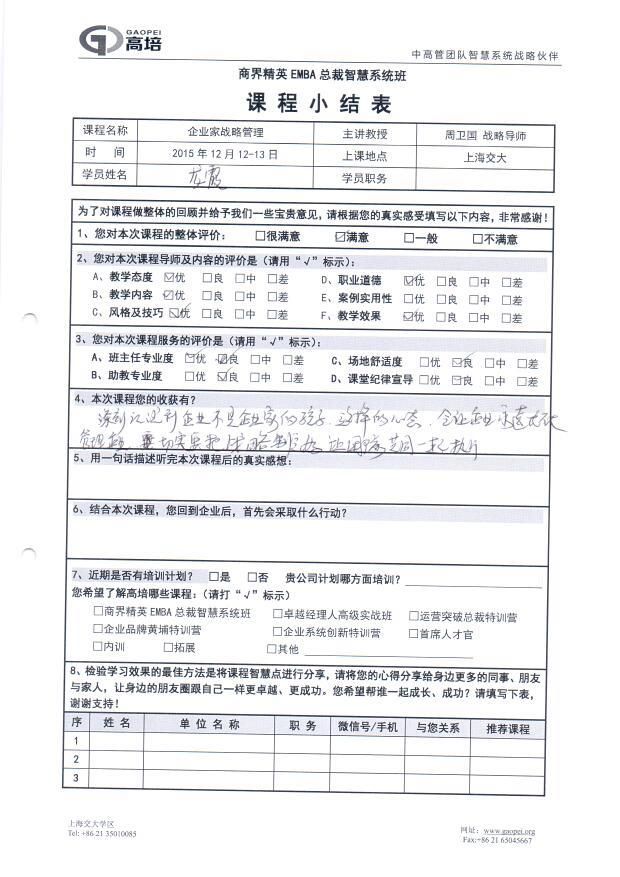 GAOPEI
高培
中高管团队智慧系统战略伙伴
商界精英 EMBA 总裁智慧系统班
课程小结表
课程名称 企业家战略管理 主讲教授 周卫国 战略导师
时 间 2015 年 12 月 12-13 日 上课地点 上海交大
学员姓名 龙霞 学员职务
为了对课程做整体的回顾并给予我们一些宝贵意见,请根据您的真实感受填写以下内容,非常感谢!
1、您对本次课程的整体评价: □很满意 ☑满意 □一般 □不满意
2、您对本次课程导师及内容的评价是(请用“√”标示):
A、教学态度 ☑优 □良 □中 □差 D、职业道德 ☑优 □良 □中 □差
B、教学内容 ☑优 □良 □中 □差 E、案例实用性 □优 □良 □中 □差
C、风格及技巧 ☑优 □良 □中 □差 F、教学效果 ☑优 □良 □中 □差
3、您对本次课程服务的评价是(请用“√”标示):
A、班主任专业度 □优 ☑良 □中 □差 C、场地舒适度 □优 ☑良 □中 □差
B、助教专业度 □优 ☑良 □中 □差 D、课堂纪律宣导 □优 ☑良 □中 □差
4、本次课程您的收获有?
深刻认识到企业不是企业家的孩子,这样的心态,会让企业
管理 要切实 战略 让团队共同一起执行
5、用一句话描述听完本次课程后的真实感想:
6、结合本次课程,您回到企业后,首先会采取什么行动?
7、近期是否有培训计划? □是 □否 贵公司计划哪方面培训?
您希望了解高培哪些课程:(请打“√”标示)
□商界精英 EMBA 总裁智慧系统班 □卓越经理人高级实战班 □运营突破总裁特训营
□企业品牌黄埔特训营 □企业系统创新特训营 □首席人才官
□内训 □拓展 □其他
8、检验学习效果的最佳方法是将课程智慧点进行分享,请将您的心得分享给身边更多的同事、朋友
与家人,让身边的朋友圈跟自己一样更卓越、更成功。您希望帮谁一起成长、成功?请填写下表,
谢谢支持!
序 姓 名 单 位 名 称 职 务 微信号/手机 与您关系 推荐课程
1
2
3
上海交大学区
Tel: +86 21 35010085
网址: www.gaopei.org
Fax:+86 21 65045667